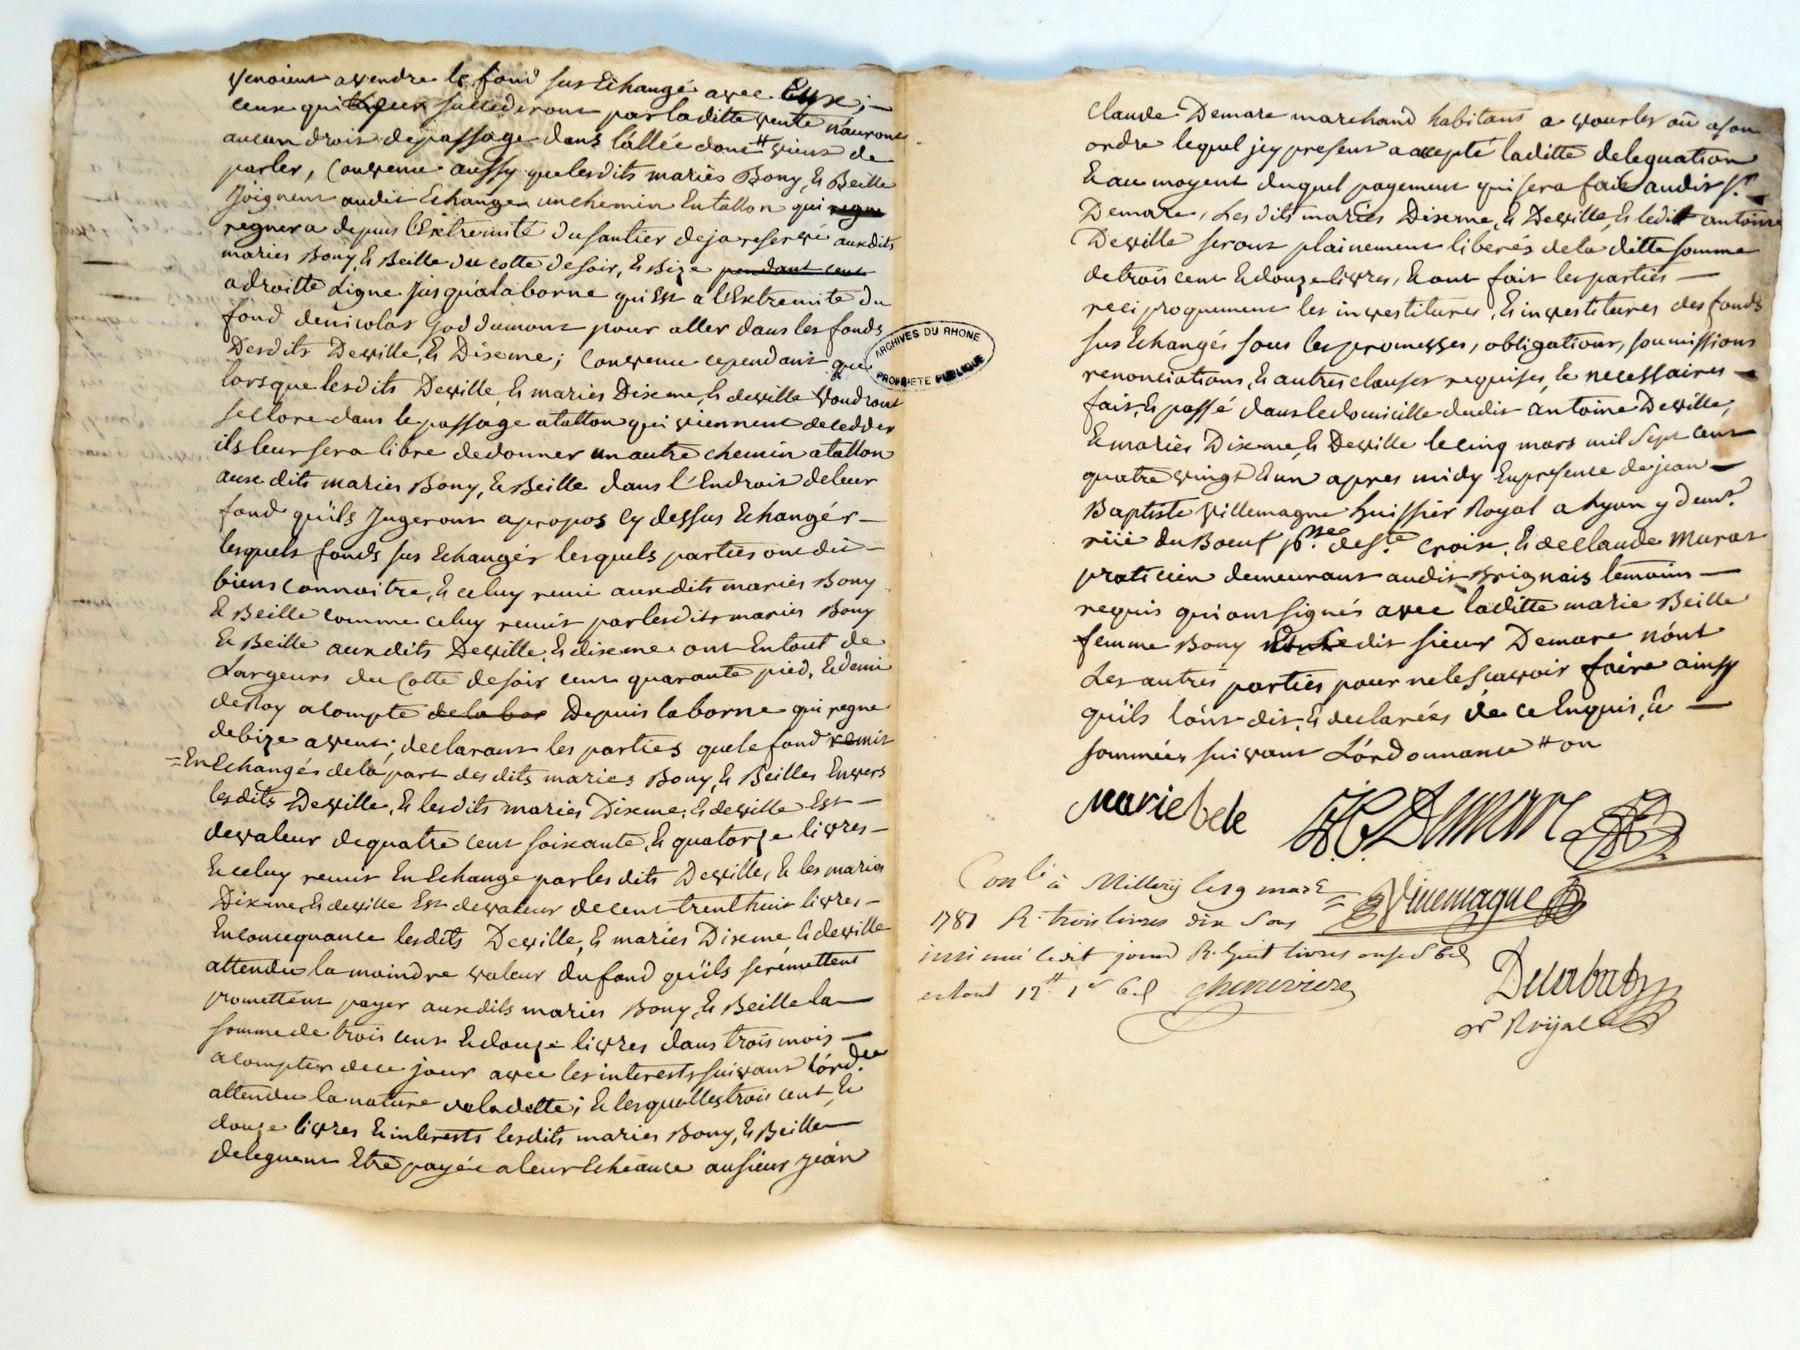 venoient a vendre le fond sus Echangé avec Eux; —
ceux qui leur succederont par laditte vente n'auront
aucun droit depassage dans l'allée dont # vient de
parler, Convenu aussy que lesdits mariés Bony, & Beille
Joignent audit Echange un chemin En tallon qui regne
regnera depuis l'Extremité du santier deja reservé auxdits
mariés Bony, & Beille du cotté de soir, & Bize pendant cent
a droitte Ligne Jusqu'a la borne qui Est a l'Extremité du
fond de nicolas Goddumont pour aller dans les fonds
Desdits Deville, & Diseme; Convenu cependant que
lorsque lesdits Deville, & mariés Diseme, & deville Voudront
se clore dans le passage a tallon qui viennent de cedder
ils leur sera libre de donner un autre chemin a tallon
aux dits mariés Bony, & Beille dans l'Endroit de leur
fond qu'ils Jugeront apropos Cy dessus Echangér —
lesquels fonds sus Echangér lesquels parties ont dit —
bien connoitre, & celuy remi aux dits mariés Bony
& Beille comme celuy remit par lesdits mariés Bony
& Beille aux dits Deville, & diseme ont En tout de
Largeurs du Cotté de soir cent quarante pied, & demi
de Roy a compte de la bor Depuis la borne qui regne
debize a vent; declarant les parties que le fond remit
= En Echangés de la part des dits mariés Bony, & Beilles Envers
lesdits Deville, & lesdits mariés Diseme, & deville Est —
devaleur dequatre cent soixante, & quatorze livres —
Et celuy remit En Echange par les dits Deville, & les mariés
Diseme, & deville Est devaleur de cent trent huit livres —
En consequance lesdits Deville, & mariés Diseme, & deville
attendu la moindre valeur du fond qu'ils se remettent
promettent payer aux dits mariés Bony, & Beille la —
somme de trois cent & douze livres dans trois mois —
a compter de ce jour avec les interests suivant l'ord.ce
attendu la nature de la dette; & lesquelles trois cent, &
douze livres & interests lesdits mariés Bony, & Beille —
deleguent Etre payée a leur Echeance au sieur Jean
ARCHIVES DU RHONE
PROPRIETE PUBLIQUE
Claude Demare marchand habitant a vourles où a son
ordre lequel jcy present a accepté laditte deleguation
& au moyent duquel payement qui sera fait audit Sr.
Demare, Les dits mariés Diseme, & Deville, & ledit antoine
Deville seront plainement liberés de la ditte somme
de trois cent & douze livres, & ont fait les parties —
reciproquement les investitures, & investitures des fonds
sus Echangés sous les promesses, obligations, soumissions
renonciations, & autres clauses requises, & necessaires —
fait, & passé dans le domicille dudit antoine Deville,
& mariés Diseme, & Deville le cinq mars mil Sept cent
quatre vingt & un apres midy En presence de jean —
Baptiste Villemagne huissier Royal a Lyon y demt.
rüe du Boeuf psse. de Ste. Croix, & de Claude Murat
praticien demeurant audit Brignais temoins —
requis qui ont signés avec laditte marie Beille
femme Bony & ledit sieur Demare n'ont
Les autres parties pour ne le Scavoir faire ainsy
qu'ils l'ont dit, & declarées de ce Enquis, & —
sommées suivant L'ordonnance # on
marie bele
J C Demare
Conlé à Millery le 9 mars
1781 R. trois livres dix sous
Villemagne
insinué ledit jour R. huit livres onze s 6 d
et tout 12 # 1 s 6 d
Delabat
Royal